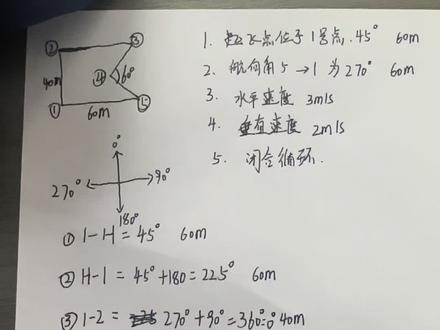 ② ③
40m ④ 60°
① 60m ⑤
1. 起飞点位于1号点.45° 60m
2. 航向角5→1为270° 60m
3. 水平速度 3m/s
4. 垂直速度 2m/s
5. 闭合循环.
0°
270° 90°
180°
① 1-H=45° 60m
② H-1=45°+180=225° 60m
③ 1-2= 270°+90°=360°=0° 40m